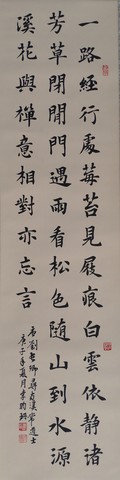 一路經行處莓苔見屐痕白雲依靜渚
芳草閉閒門過雨看松色隨山到水源
溪花與禪意相對亦忘言
唐劉長卿尋南溪常道士
庚子年夏月李